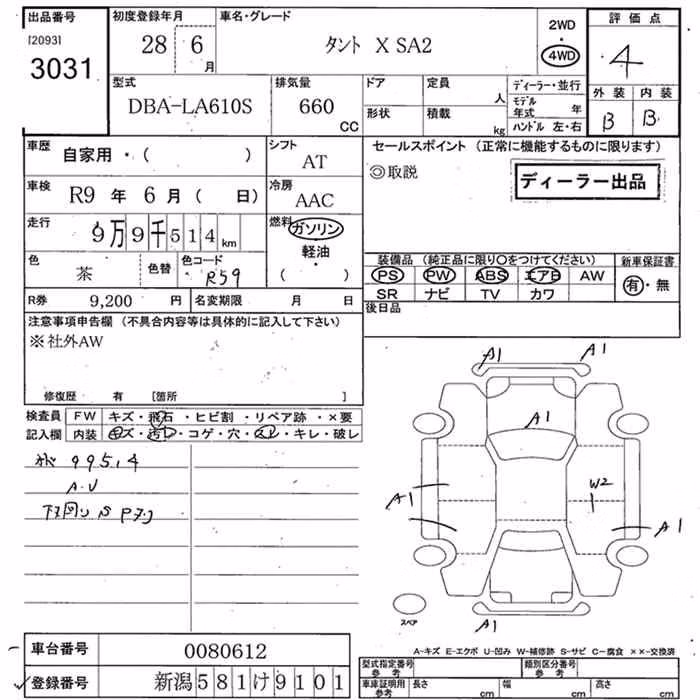 出品番号 初度登録年月 車名・グレード 2WD 評価点
[2093] 28 6月 タント X SA2 4WD 4
3031 型式 排気量 ドア 定員 人 ディーラー・並行 外装 内装
DBA-LA610S 660 CC 形状 積載 kg モデル年式 年 B B
ハンドル 左・右
車歴 自家用・( ) シフト AT セールスポイント (正常に機能するものに限ります)
◎取説 ディーラー出品
車検 R9 年 6 月 ( 日) 冷房 AAC
走行 9万9千514 km 燃料 ガソリン
軽油・
( )
色 茶 色替 色コード R59
装備品 (純正品に限り○をつけてください) 新車保証書
PS PW ABS エアB AW 有・無
SR ナビ TV カワ
R券 9,200 円 名変期限 月 日 後日品
注意事項申告欄 (不具合内容等は具体的に記入して下さい)
※社外AW
修復歴 有 [箇所 ]
検査員 FW キズ・飛石・ヒビ割・リペア跡・×要
記入欄 内装 キズ・汚レ・コゲ・穴・スレ・キレ・破レ
99514
A.U
A1 A1
A1
W2
A1
A1
スペア
A1
A-キズ E-エクボ U-凹み W-補修跡 S-サビ C-腐食 ××-交換済
車台番号 0080612
登録番号 新潟 581 け 9101
型式指定番号 参考 類別区分番号 参考
車庫証明用 参考 長さ cm 幅 cm 高さ cm